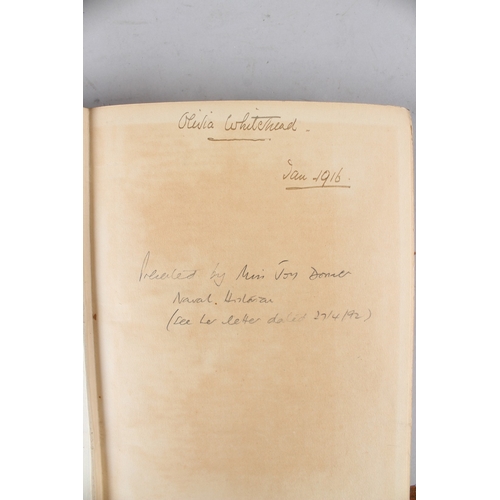 Olivia Whitehead.
Jan 1916.
Presented by Miss Joy
Naval Historian
(See her letter dated 27/4/92)